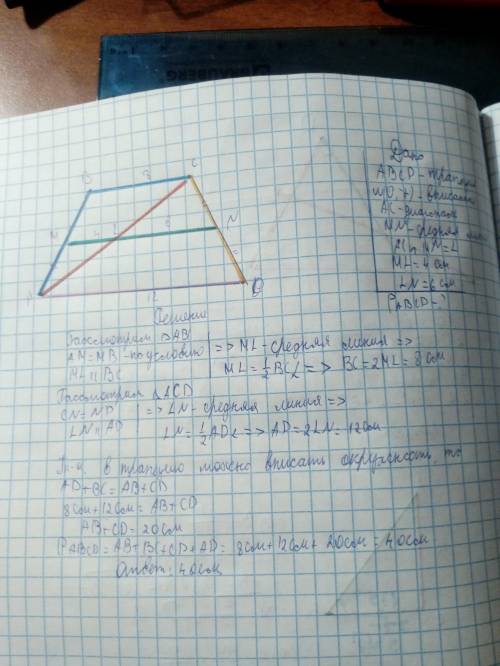 BRAUBERG
B 8 C
M 4 L 6 N
A 12 D
Дано
ABCD - трапеция
AC - диагональ
MN - средняя линия
AC ∩ MN = L
ML = 4 см
LN = 6 см
PABCD - ?
Решение
Рассмотрим △ABC
AM = MB - по условию
ML || BC
=> ML - средняя линия =>
ML = 1/2 BC => BC = 2ML = 8 см
Рассмотрим △ACD
CN = ND
LN || AD
=> LN - средняя линия =>
LN = 1/2 AD => AD = 2LN = 12 см
Т.к. в трапецию можно вписать окружность, то
AD + BC = AB + CD
8 см + 12 см = AB + CD
AB + CD = 20 см
PABCD = AB + BC + CD + AD = 8 см + 12 см + 20 см = 40 см
Ответ: 40 см